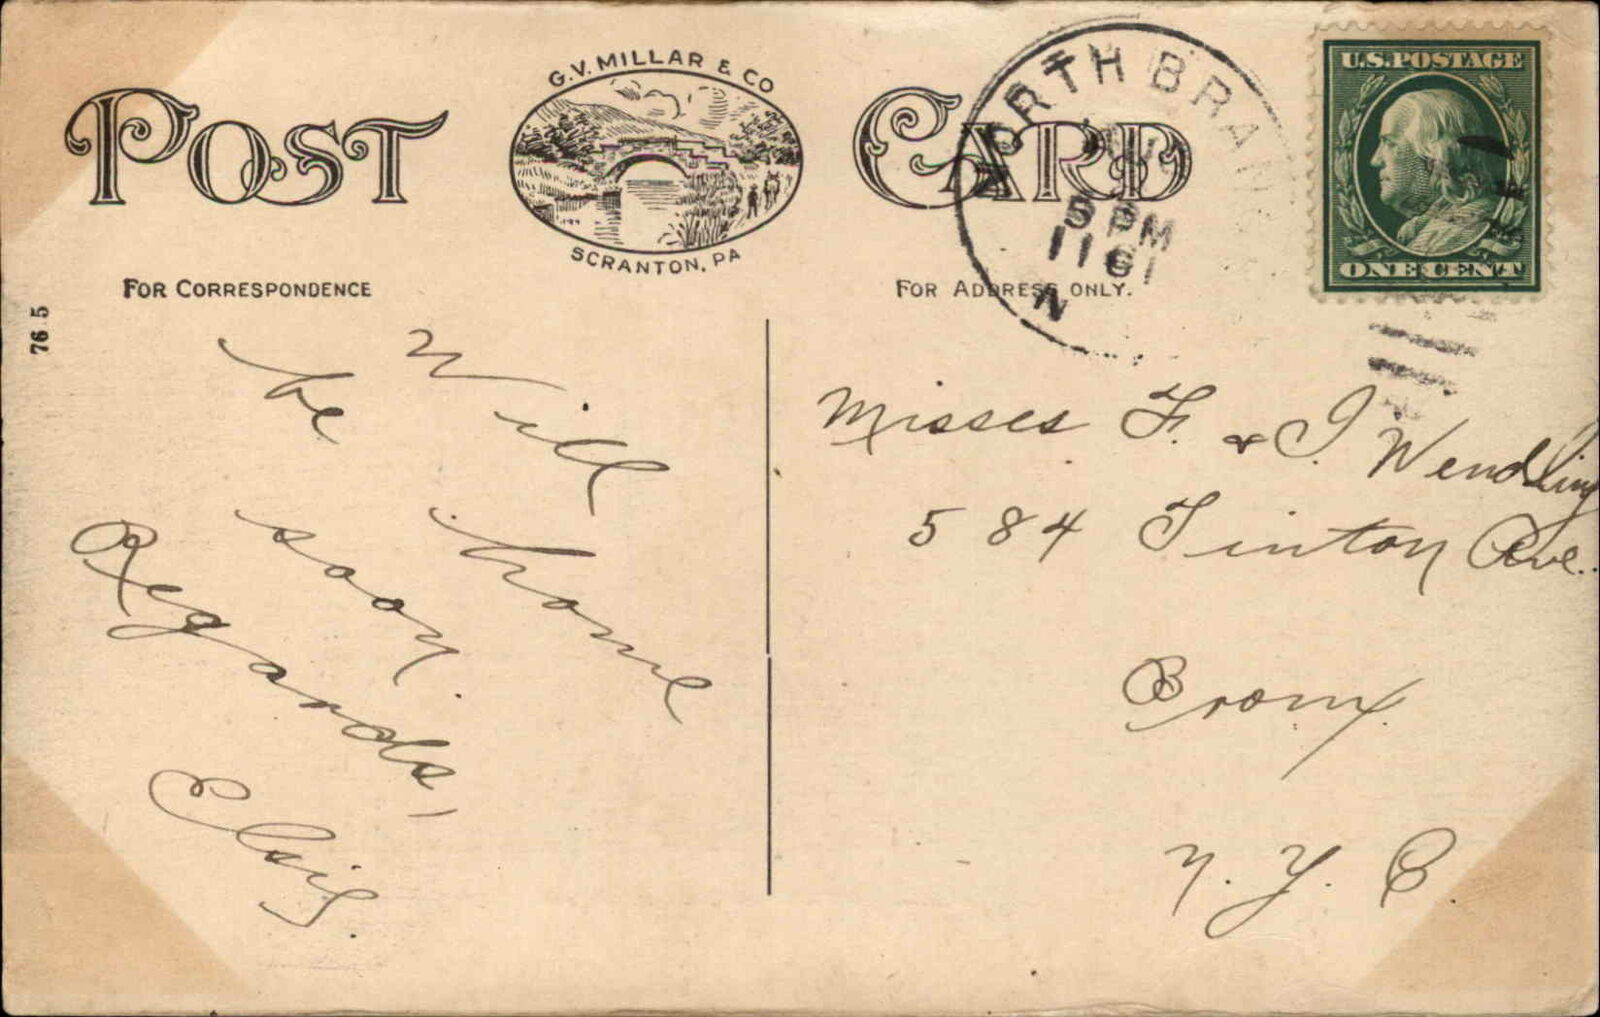 POST CARD
G.V. MILLAR & CO
SCRANTON, PA
FOR CORRESPONDENCE
FOR ADDRESS ONLY.
76 5
NORTH BRAN
5 PM
N
U.S. POSTAGE
ONE CENT
Will
be home
soon.
Regards,
Elsie.
Misses F. & I. Wendling
584 Tinton Ave.
Bronx.
N. Y. C